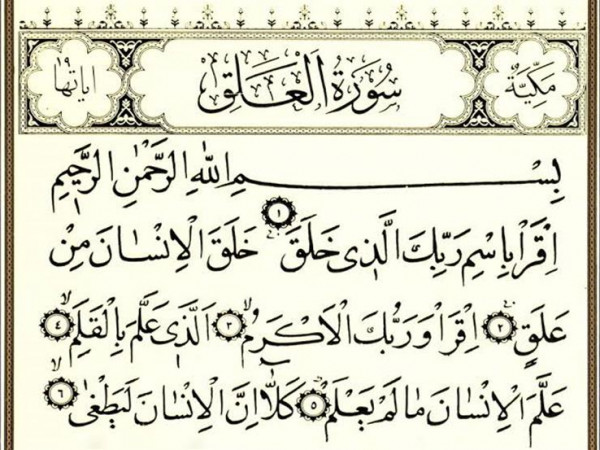 مَكِّيَّةٌ سُورَةُ الْعَلَقِ اٰيَاتُهَا ١٩
بِسْمِ اللّٰهِ الرَّحْمٰنِ الرَّح۪يمِ
اِقْرَأْ بِاسْمِ رَبِّكَ الَّذ۪ي خَلَقَۚ ١ خَلَقَ الْاِنْسَانَ مِنْ
عَلَقٍۚ ٢ اِقْرَأْ وَرَبُّكَ الْاَكْرَمُۙ ٣ اَلَّذ۪ي عَلَّمَ بِالْقَلَمِۙ ٤
عَلَّمَ الْاِنْسَانَ مَا لَمْ يَعْلَمْۜ ٥ كَلَّٓا اِنَّ الْاِنْسَانَ لَيَطْغٰىۙ ٦